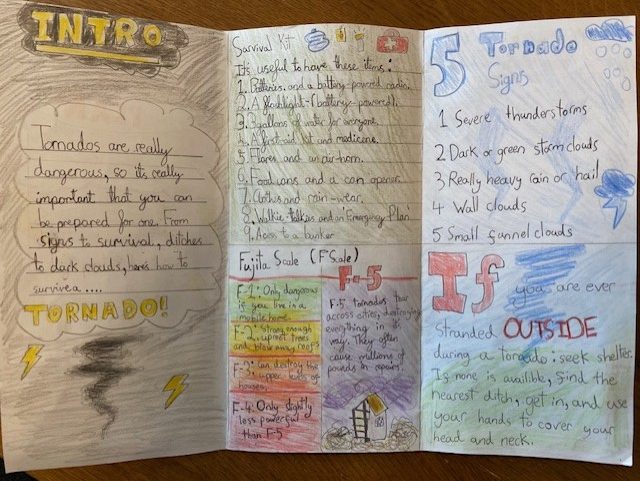 INTRO
Tornados are really
dangerous, so its really
important that you can
be prepared for one. From
signs to survival, ditches
to dark clouds, heres how to
survive a ....
TORNADO!
Sarvival Kit
It's useful to have these items:
1. Batteries and a battery-powered radio.
2. A flashlight (battery-powered).
3. 3 gallons of water for everyone.
4. A first-aid kit and medicene.
5. Flares and an air-horn.
6. Food cans and a can opener.
7. Clothes and rain-wear.
8. Walkie talkies and an Emergency Plan
9. Acess to a bunker
Fujita Scale (F Scale)
F-1: Only dangerous
if you live in a
mobile home.
F-2: Strong enough
uproot trees
and blow away roofs
F-3: Can destroy the
upper levels of
houses.
F-4: Only slightly
less powerful
than F-5
F-5
F-5 tornados tear
across cities, destroying
everything in its
way. They often
cause millions of
pounds in repairs.
5 Tornado
Signs
1 Severe thunderstorms
2 Dark or green storm clouds
3 Really heavy rain or hail
4 Wall clouds
5 Small funnel clouds
If you are ever
stranded OUTSIDE
during a tornado: seek shelter.
If none is availible, find the
nearest ditch, get in, and use
your hands to cover your
head and neck.